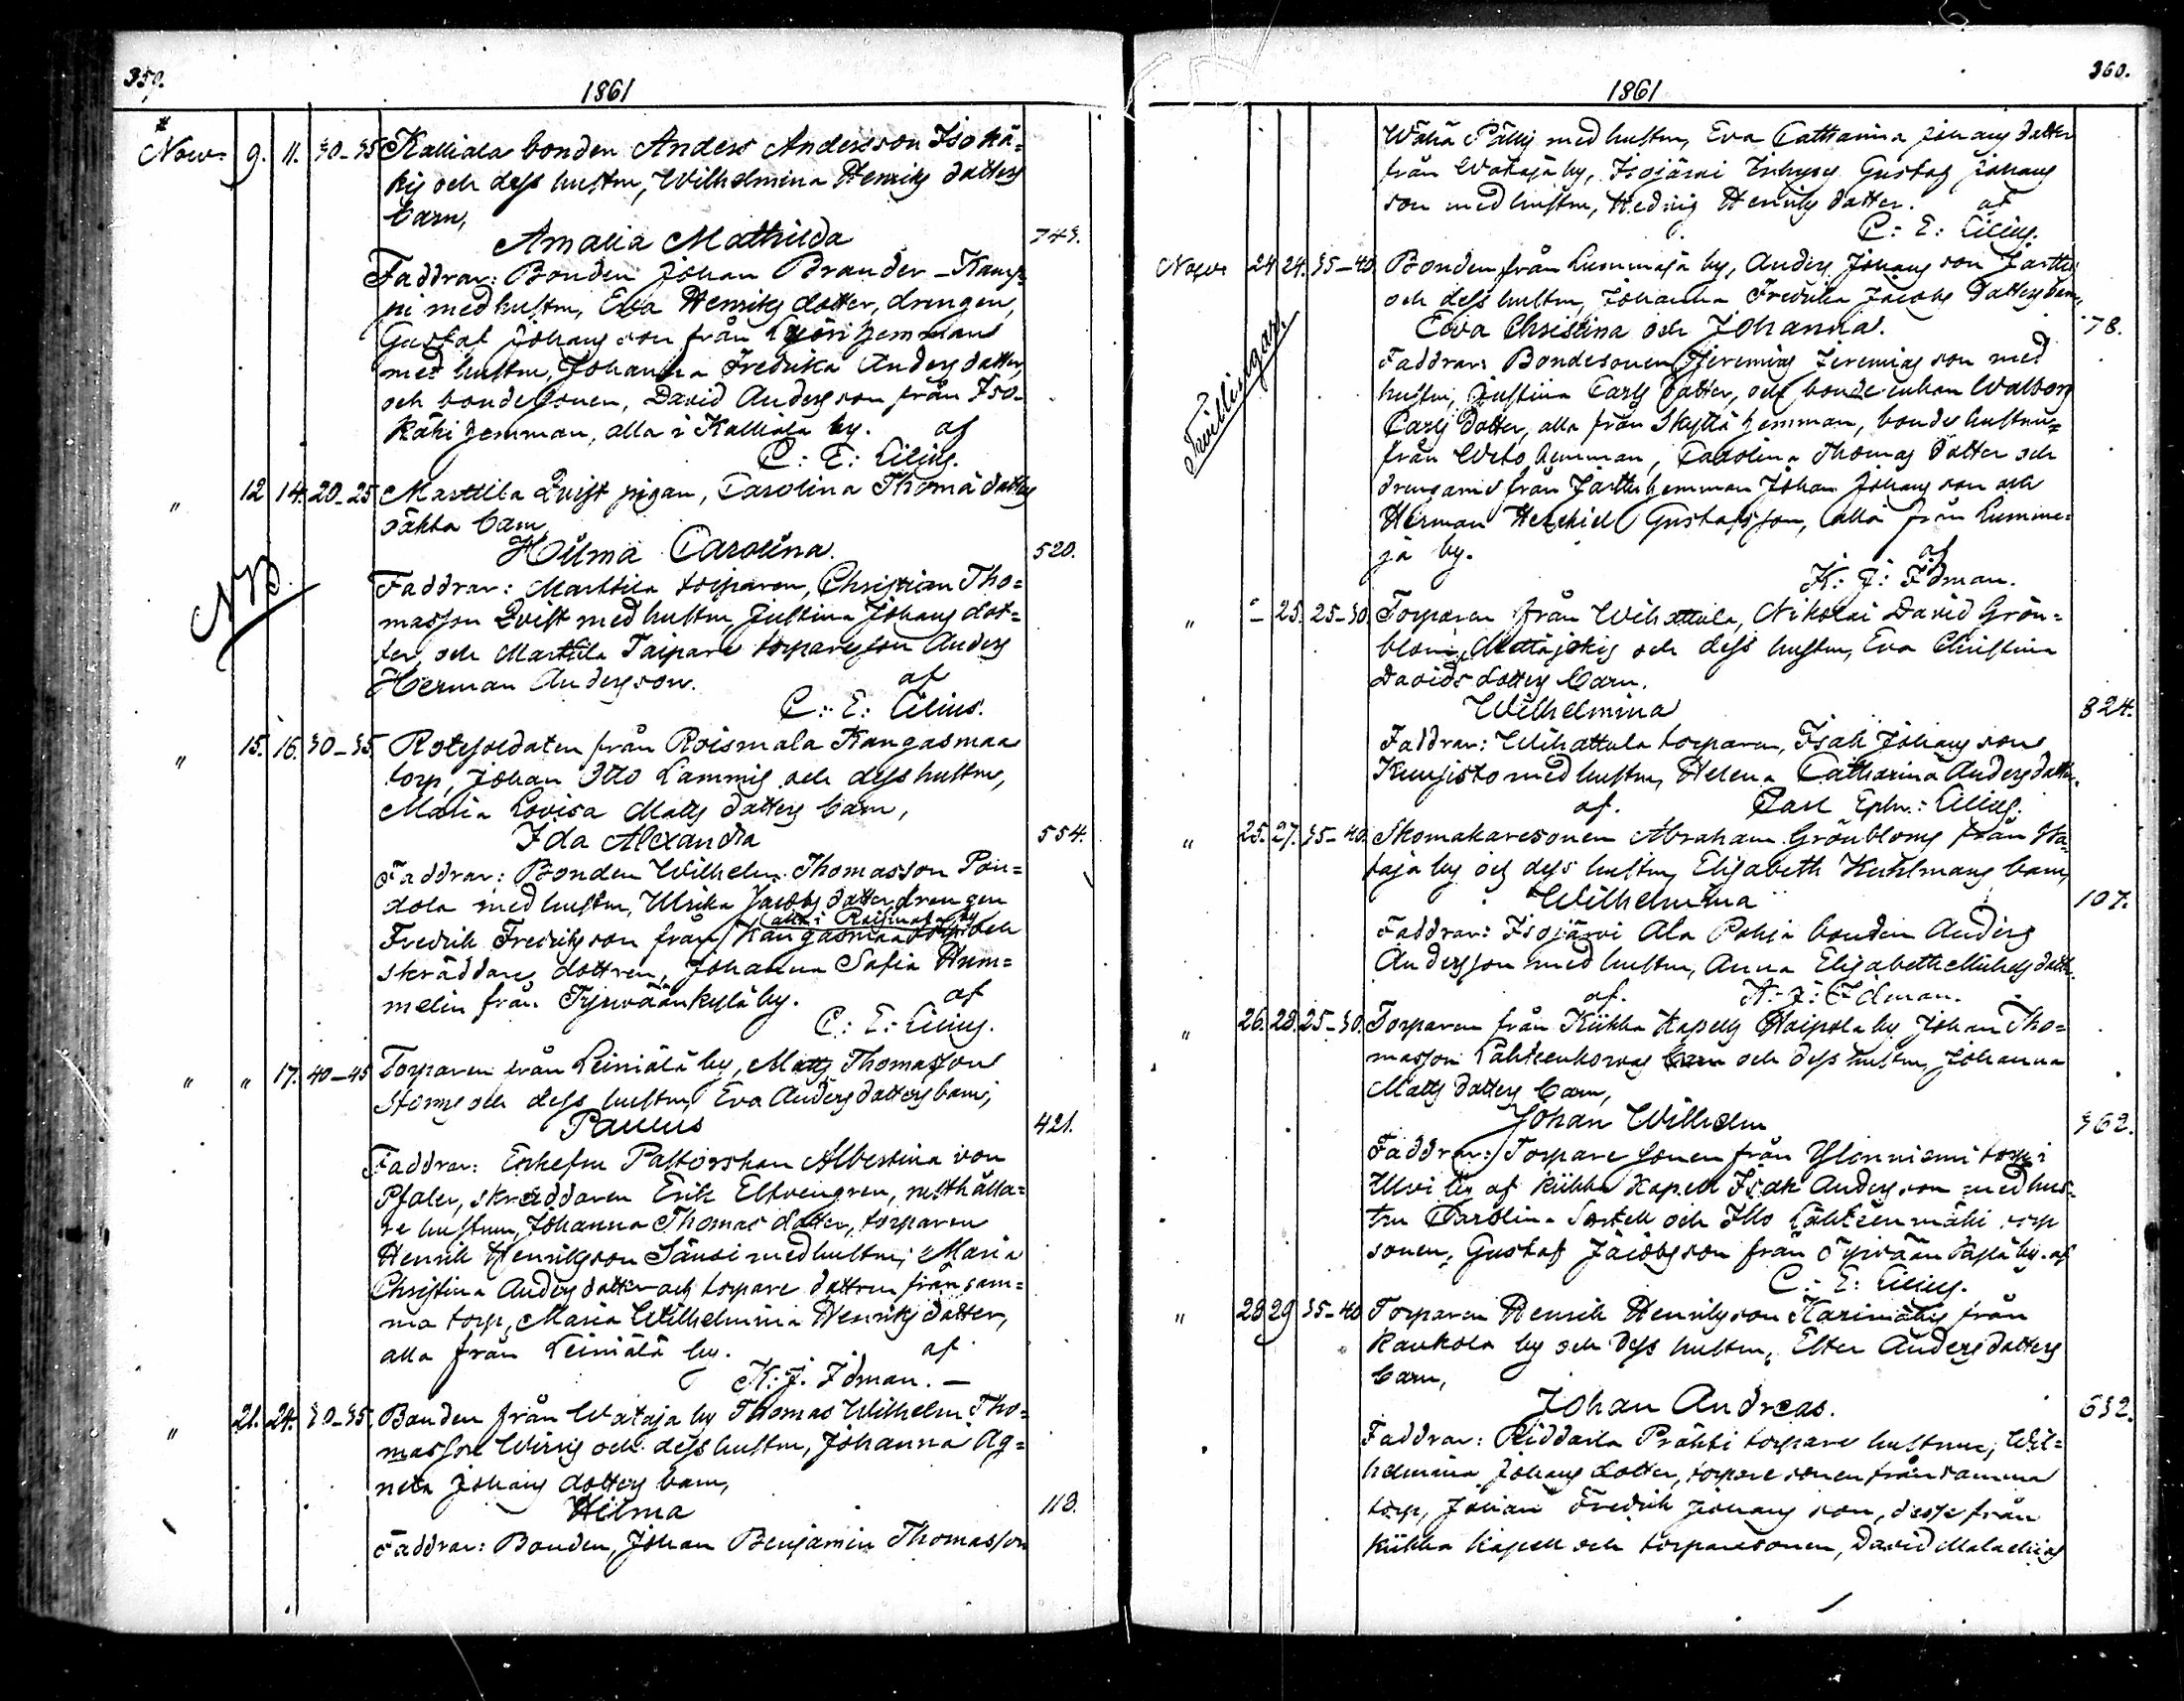 359.
1861
Novr 9. 11. 30-35 Kalliala bonden Anders Andersson Isokä=
kis och dess hustru, Wilhelmina Henriks dotters
barn,
Amalia Mathilda 743.
Faddrar: Bonden Johan Brander-Kamp=
pi med hustru, Eva Henriks dotter, drängen,
Gustaf Johans son från hemman
med hustru, Johanna Fredrika Anders dotter,
och bondesonen, David Anders son från Iso-
käki hemman, alla i Kalliala by. af
C: E: Cilius.
" 12 14. 20-25 Marttila Qvist pigan, Carolina Thomä dotters
oäkta barn
Hilma Carolina. 520.
NB.
Faddrar: Marttila torparen, Christian Tho=
masson Qvist med hustru Justina Johans dot=
ter, och Marttila Taipare torparesson Anders
Herman Andersson. af
C: E: Cilius.
" 15. 16. 30-35. Rotesoldaten från Roismala Kangasmaa
torp, Johan Otto Lammis och dess hustru,
Maria Lovisa Matts dotters barn,
Ida Alexandra 554.
Faddrar: Bonden Wilhelm Thomasson Pön=
dola med hustru, Ulrika Jacobs dotter, drengen
alla i Roismala by
Fredrik Fredriksson från Kangasmaa torp och
skräddare dottren, Johanna Sofia Hum=
melin från Tyrwäänkylä by. af
C: E: Cilius.
" " 17. 40-45 Torparen från Leiniälä by, Matts Thomasson
och dess hustru, Eva Anders dotters barn,
Paulus 421.
Faddrar: Enkefru Pastorskan Albertina von
Pfaler, skräddaren Erik Elfvengren, rusthålla=
re hustrun, Johanna Thomas dotter, torparen
Henrik Henriksson Sänvi med hustru, Maria
Christina Anders dotter och torpare dottren från sam=
ma torp, Maria Wilhelmina Henriks dotter,
alla från Leiniälä by. af
K: J: Idman. -
" 21. 24. 30-35. Bonden från Wataja by Thomas Wilhelm Tho=
masson och dess hustru, Johanna Ag=
neta Johans dotters barn,
Hilma 118.
Faddrar: Bonden, Johan Benjamin Thomasson
360.
1861
Wähä Pällis med hustru, Eva Catharina Johans dotter
från Wataja by, Isojärvi Inhyses Gustaf Johans
son med hustru, Hedvig Henriks dotter. af
C: E: Cilius.
Novr 24 24. 35-40. Bonden från Lummaja by, Anders Johans son
och dess hustru, Johanna Fredrika Jacobs dotters barn,
Eva Christina och Johanna. 78.
Tvillingar.
Faddrar: Bondesonen Jeremias Jeremias son med
hustru, Justina Carls dotter, och bonde enkan Walborg
Carls dotter, alla från Skyttä hemman, bonde hustrun
från hemman, Carolina Thomas dotter och
drengarne från hemman Johan Johans son och
Herman Heskiel Gustafsson, alla från Lumma=
ja by. af
K: J: Idman.
" - 25. 25-30. Torparen från Wihattula, Nikolai David Grön=
blom, och dess hustru, Eva Christina
Davids dotters barn.
Wilhelmina 324.
Faddrar: Wihattula torparen, Isak Johans son
Kuusisto med hustru, Helena Catharina Anders dotter.
af. Carl Ephr: Cilius.
" 25. 27. 35-40. Skomakaresonen Abraham Grönbloms från Ha
taja by och dess hustru, Elisabeth Kuhlmans barn,
Wilhelmina 107.
Faddrar: Isojärvi Ala Pohja bonden Anders
Andersson med hustru, Anna Elisabeth Michels dotter.
af. K: J: Idman.
" 26. 28. 25-30. Torparen från Kiikka Kapells Haipola by Johan Tho=
masson och dess hustru, Johanna
Matts dotters barn,
Johan Wilhelm 362.
Faddrar: Torpare sonen från Ylönniemi torp i
Ulvi by af Kiikka Kapell Isak Andersson med hus-
tru Carolina och Illo Lähteenmäki torp
sonen, Gustaf Jacobsson från Tyrvään kylä by. af
C: E: Cilius.
" 28 29 35-40 Torparen Henrik Henriksson Harimäkis från
Kaukola by och dess hustru, Ester Anders dotters
barn,
Johan Andreas. 632.
Faddrar: Riddaila Prähti torpare hustrun, Wil=
helmina Johans dotter, torparesonen från samma
torp, Johan Fredrik Johans son, desse från
Kiikka Kapell och torparesonen, David Malachias